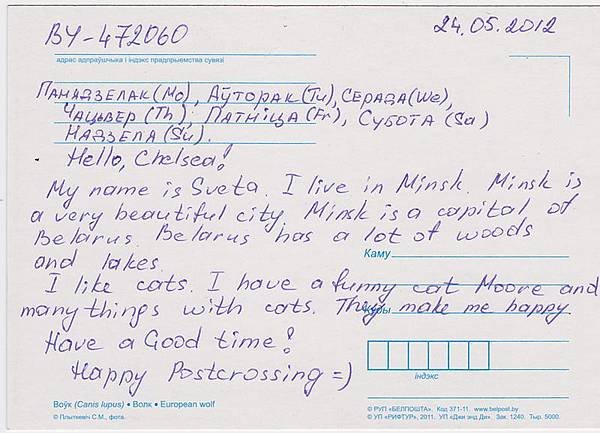 BY-472060
24.05.2012
адрас адпраўшчыка і індэкс прадпрыемства сувязі
Панядзелак (Mo), Аўторак (Tu), Серада (We),
Чацьвер (Th), Пятніца (Fr), Субота (Sa)
Надзеля (Su).
Hello, Chelsea!
My name is Sveta. I live in Minsk. Minsk is
a very beautiful city. Minsk is a capital of
Belarus. Belarus has a lot of woods
and lakes.
Каму
I like cats. I have a funny cat Moore and
many things with cats. They make me happy.
Куды
Have a Good time!
Happy Postcrossing =)
індэкс
Воўк (Canis lupus) • Волк • European wolf
© Плыткевіч С.М., фота.
© РУП «БЕЛПОШТА». Код 371-11. www.belpost.by
© УП «РИФТУР», 2011. УП «Джи энд Ди». Зак. 1240. Тыр. 5000.